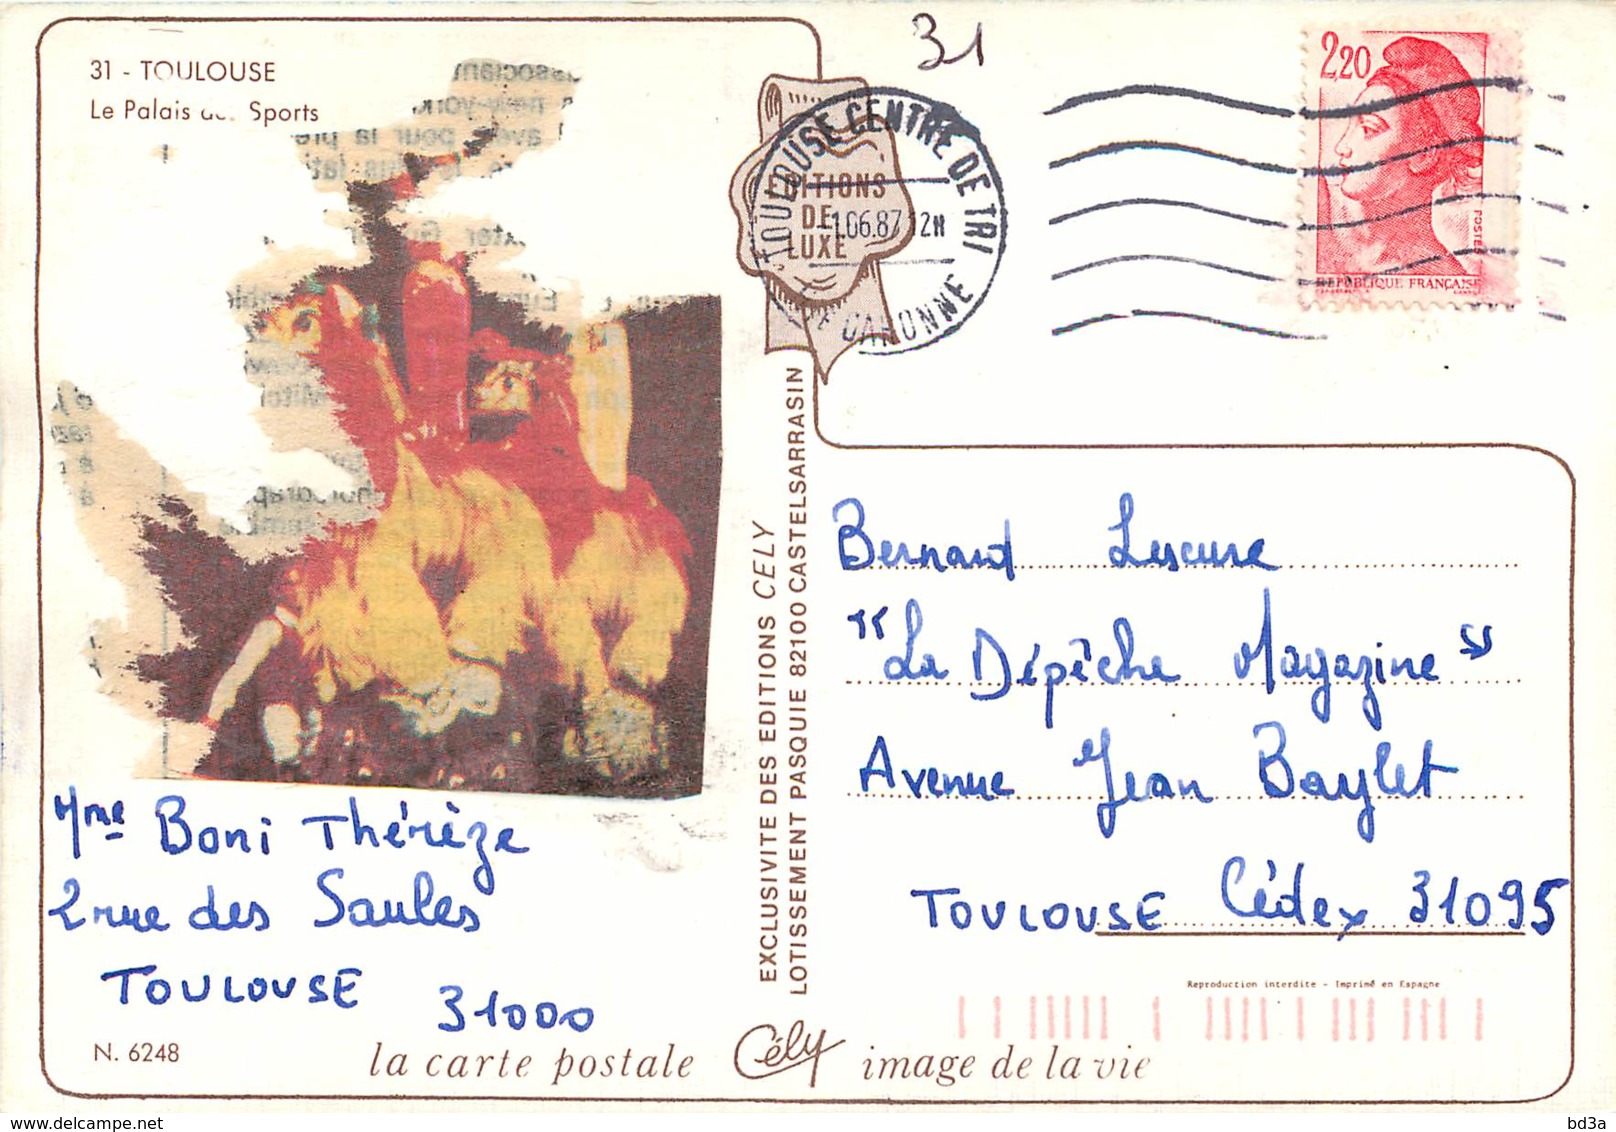 31 - TOULOUSE
Le Palais Sports
31
2,20
POSTES
REPUBLIQUE FRANÇAISE
TOULOUSE CENTRE DE TRI
-1.06.87 12H
GARONNE
EDITIONS
DE
LUXE
EXCLUSIVITE DES EDITIONS CELY
LOTISSEMENT PASQUIE 82100 CASTELSARRASIN
Bernard Lescure
"La Dépêche Magazine"
Avenue Jean Baylet
TOULOUSE Cédex 31095
Mme Boni Thérèze
2 rue des Saules
TOULOUSE
31000
Reproduction interdite - Imprimé en Espagne
N. 6248
la carte postale Cély image de la vie
www.delcampe.net
bd3a